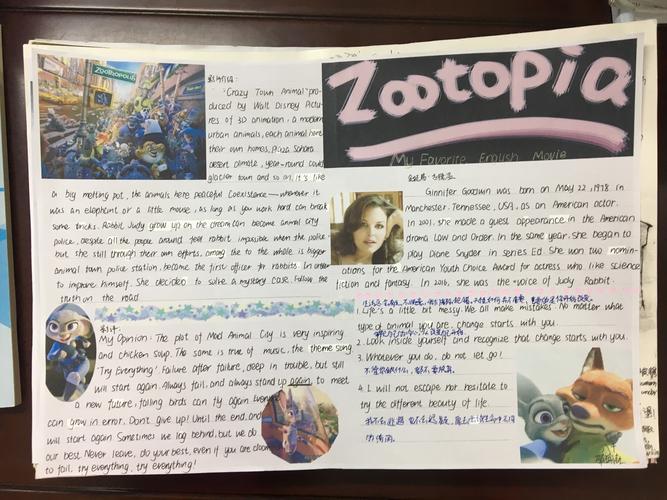 ZOOTROPOLIS
Zootopia
My Favorite English Movie
"Crazy Town Animal" pro-
duced by Walt Disney Pictu-
res of 3D animation, a modern
urban animals, each animal have
their own homes, Plaza Sahara
desert climate, year-round cold
glacier town and so on, it's like
a big melting pot, the animals here peaceful Coexistence — wherever it
was an elephant or a little mouse, as long as you work hard can break
some tricks. Rabbit Judy grow up on the dream can become animal city
police, despite all the people around tell rabbit impossible when the police.
but she still through their own efforts, among the to the whole is bigger
animal town police station, become the first officer for rabbits. In order
to improve himself. She decided to solve a mystery case. Follow the
truth on the road
Ginnifer Goodwin was born on May 22, 1978. in
Manchester, Tennessee, USA, as an American actor.
In 2001, she made a guest appearance in the American
drama Law and Order. In the same year, She began to
play Diane Snyder in series Ed. She won two nomin-
ations for the American Youth Choice Award for actress who like science
fiction and fantasy. In 2016, she was the voice of Judy Rabbit.
影评:
My Opinion: The plot of Mad Animal City is very inspiring
and chicken soup. The same is true of music, the theme song
"Try Everything". Failure after failure, deep in trouble, but still
will start again. Always fail, and always stand up again, to meet
a new future, falling birds can fly again
can grow in error. Don't give up! Until the end, and
will start again Sometimes we lag behind, but we do
our best. Never leave, do your best, even if you are doom
to fail, try everything, try everything!
1. Life's a little bit messy. We all make mistakes. No matter what
type of animal you are, change starts with you.
2. Look inside yourself and recognize that change starts with you.
3. Whatever you do, do not let go!
不管你做什么，都不要放弃.
4. I will not escape nor hesitate to
try the different beauty of life.